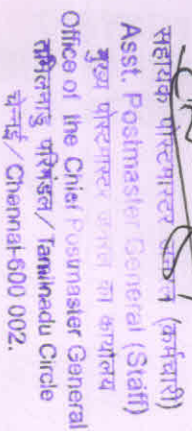 सहायक पोस्टमास्टर जनरल (कर्मचारी)
Asst. Postmaster General (Staff)
मुख्य पोस्टमास्टर जनरल का कार्यालय
Office of the Chief Postmaster General
तमिलनाडु परिमंडल/Tamilnadu Circle
चेन्नई/Chennai-600 002.